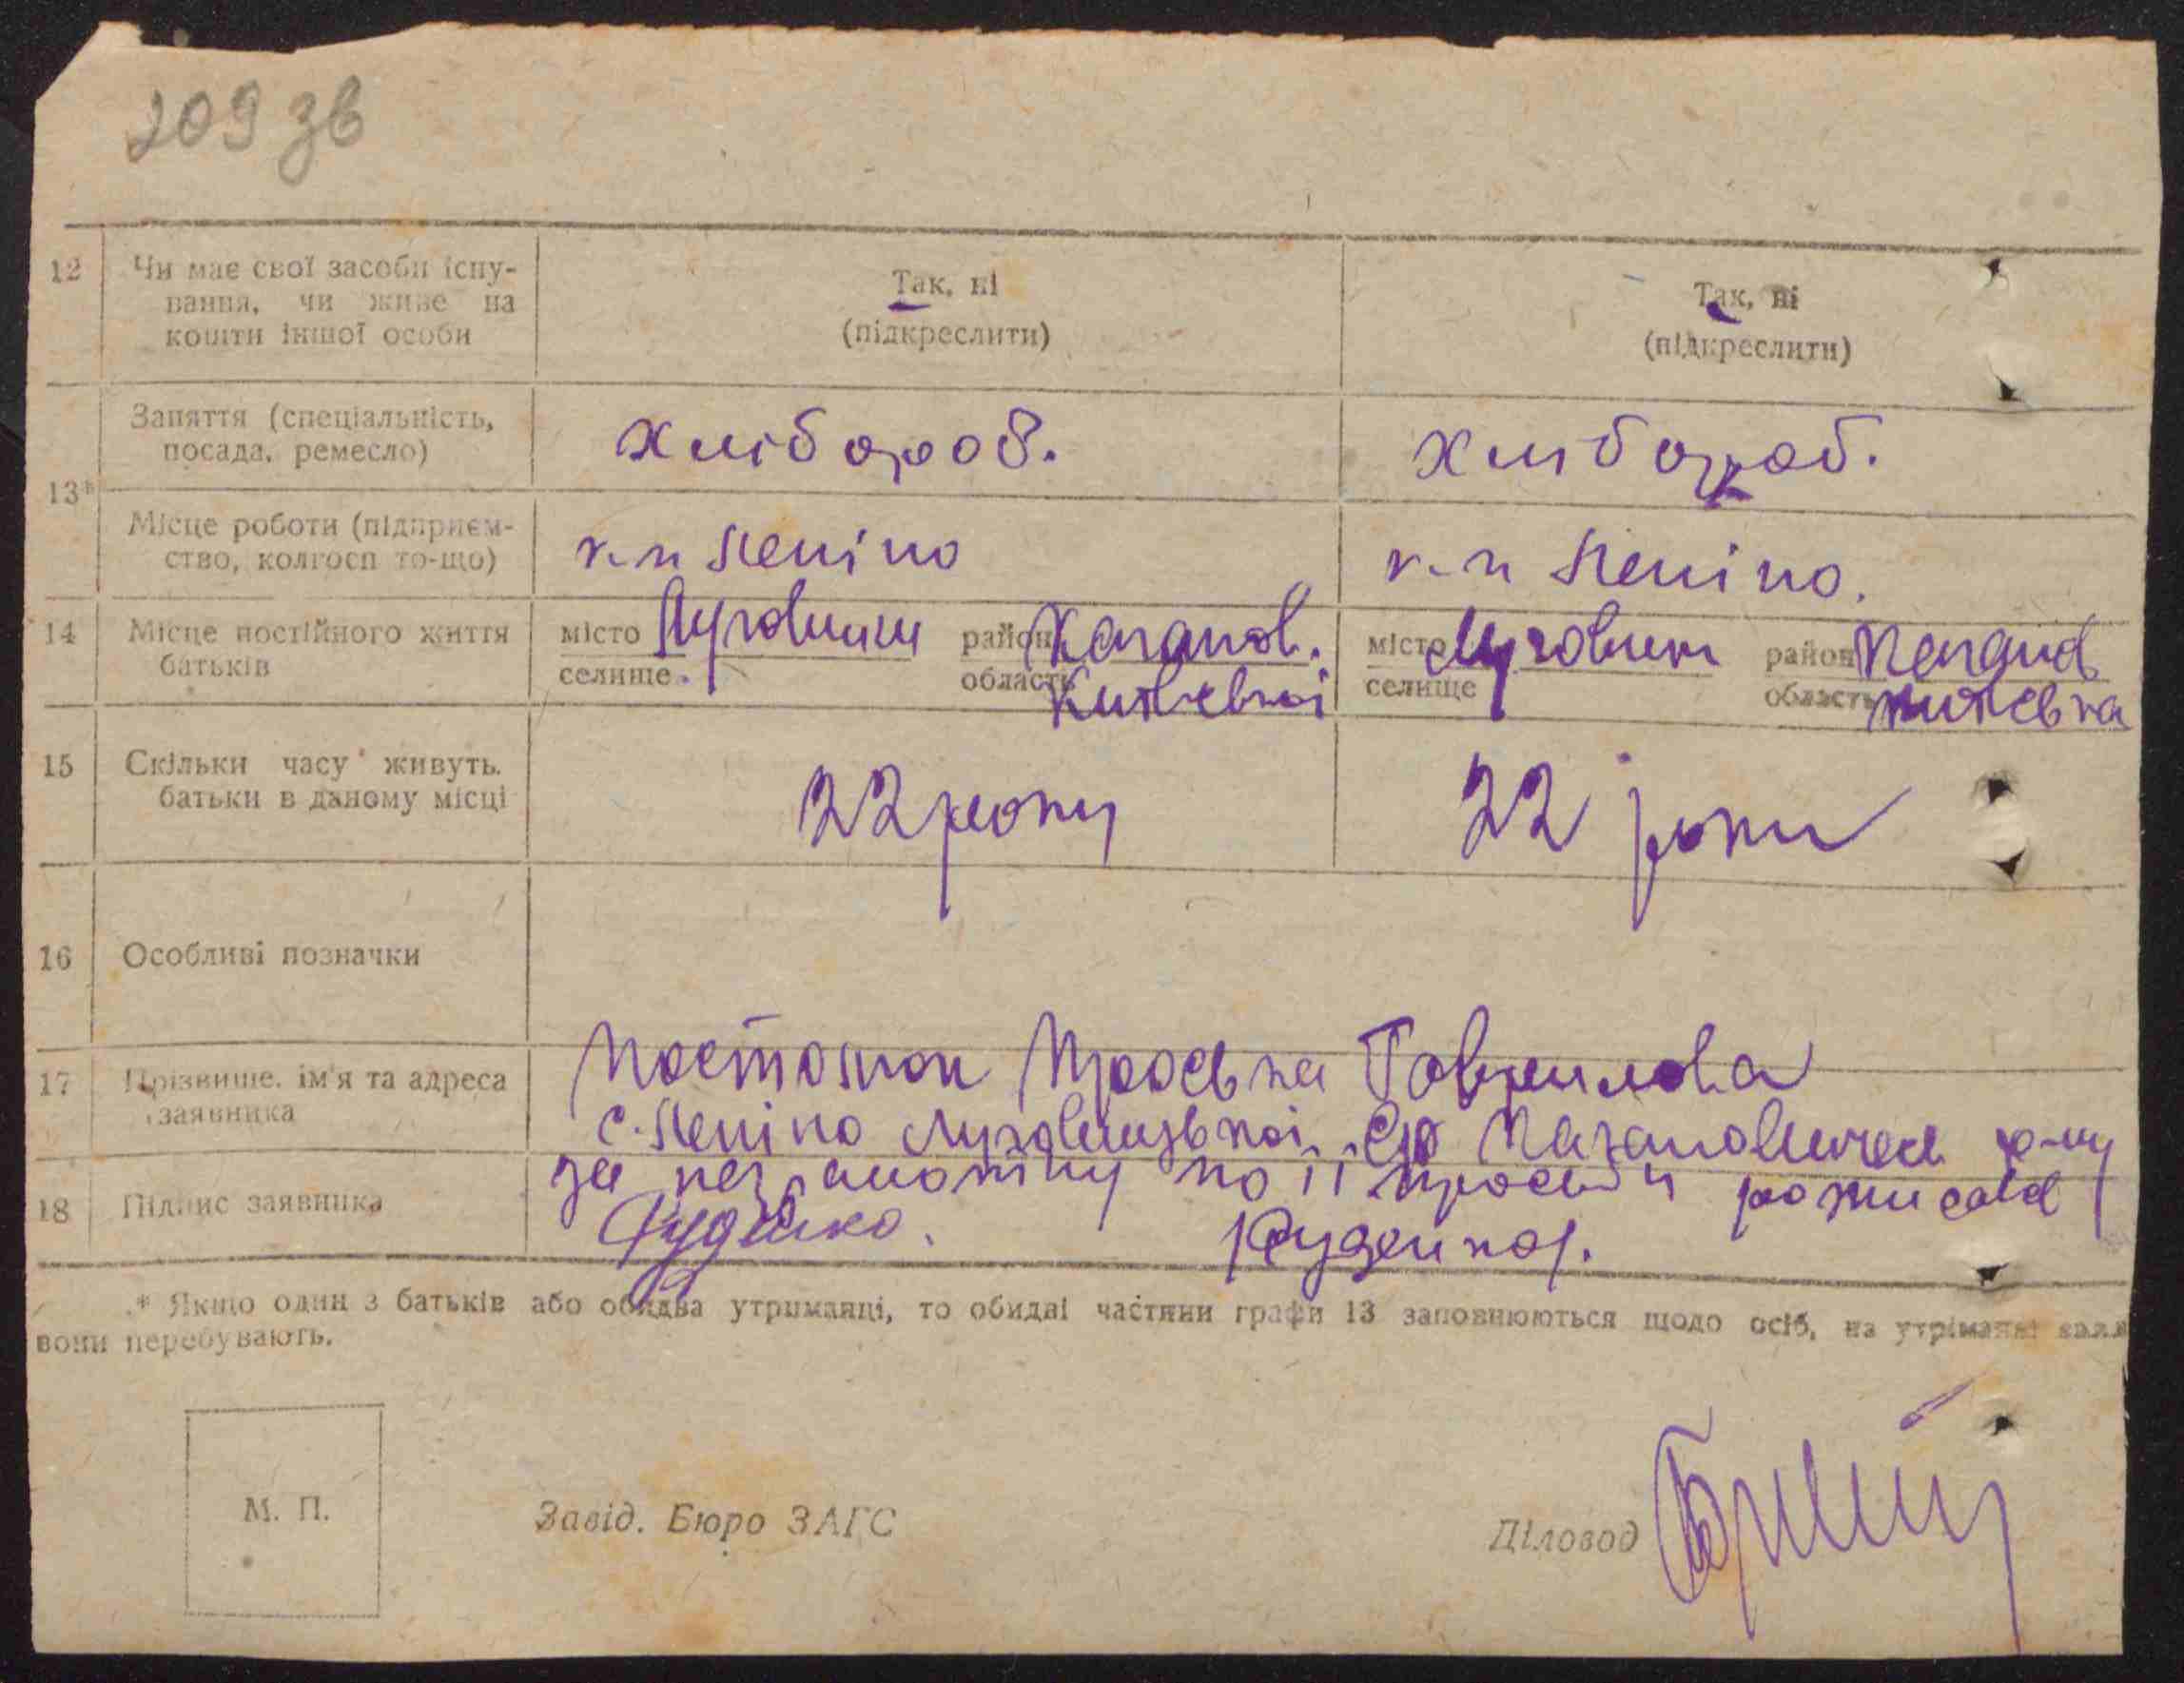 209 зв
12 Чи має свої засоби існу- Так, ні Так, ні
вання, чи живе на (підкреслити) (підкреслити)
кошти іншої особи
13* Заняття (спеціальність, хлібороб. хлібороб.
посада, ремесло)
Місце роботи (підприєм- Леніно Леніно.
ство, колгосп то-що)
14 Місце постійного життя місто Луговики район Каганов. місто Луговики район Каганов
батьків селище область Київської селище область Київська
15 Скільки часу живуть 22 року 22 роки
батьки в даному місці
16 Особливі позначки
17 Прізвище, ім'я та адреса Гаврилова
заявника с. Леніно
18 Підпис заявника за по її просьби
Руденко.
* Якщо один з батьків або обидва утриманці, то обидві частини графи 13 заповнюються щодо осіб, на утриманні
вони перебувають.
М. П. Завід. Бюро ЗАГС Діловод